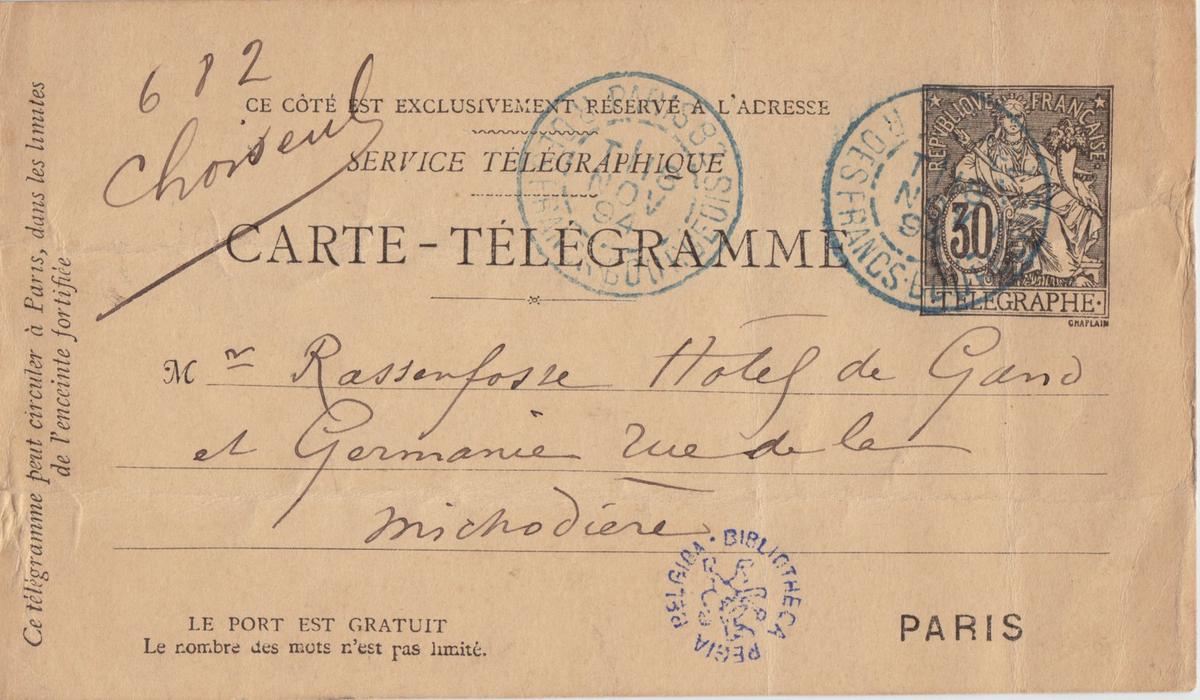 682
Choiseul
CE CÔTÉ EST EXCLUSIVEMENT RÉSERVÉ A L'ADRESSE
SERVICE TÉLÉGRAPHIQUE
CARTE-TÉLÉGRAMME
PARIS 82
NOV
94
R DES FRANCS-BOU
RÉPUBLIQUE FRANÇAISE
30
TÉLÉGRAPHE
CHAPLAIN
Mr Rassenfosse Hotel de Gand
et Germanie rue de la
Michodière
Ce télégramme peut circuler à Paris, dans les limites
de l'enceinte fortifiée
BIBLIOTHECA REGIA BELGICA
LE PORT EST GRATUIT
Le nombre des mots n'est pas limité.
PARIS